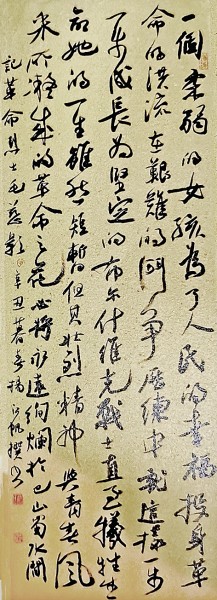 一個柔弱的女孩為了人民的幸福投身革
命的洪流在艱難的鬥爭歷練中就這樣一步
一步成長為堅定的布尔什維克戰士直至犧牲生
命她的一生雖然短暫但其壯烈精神與青春風
采所凝成的革命之花必將永遠绚爛於巴山蜀水間
記革命烈士毛慈影 辛丑暮春楊 帆撰書